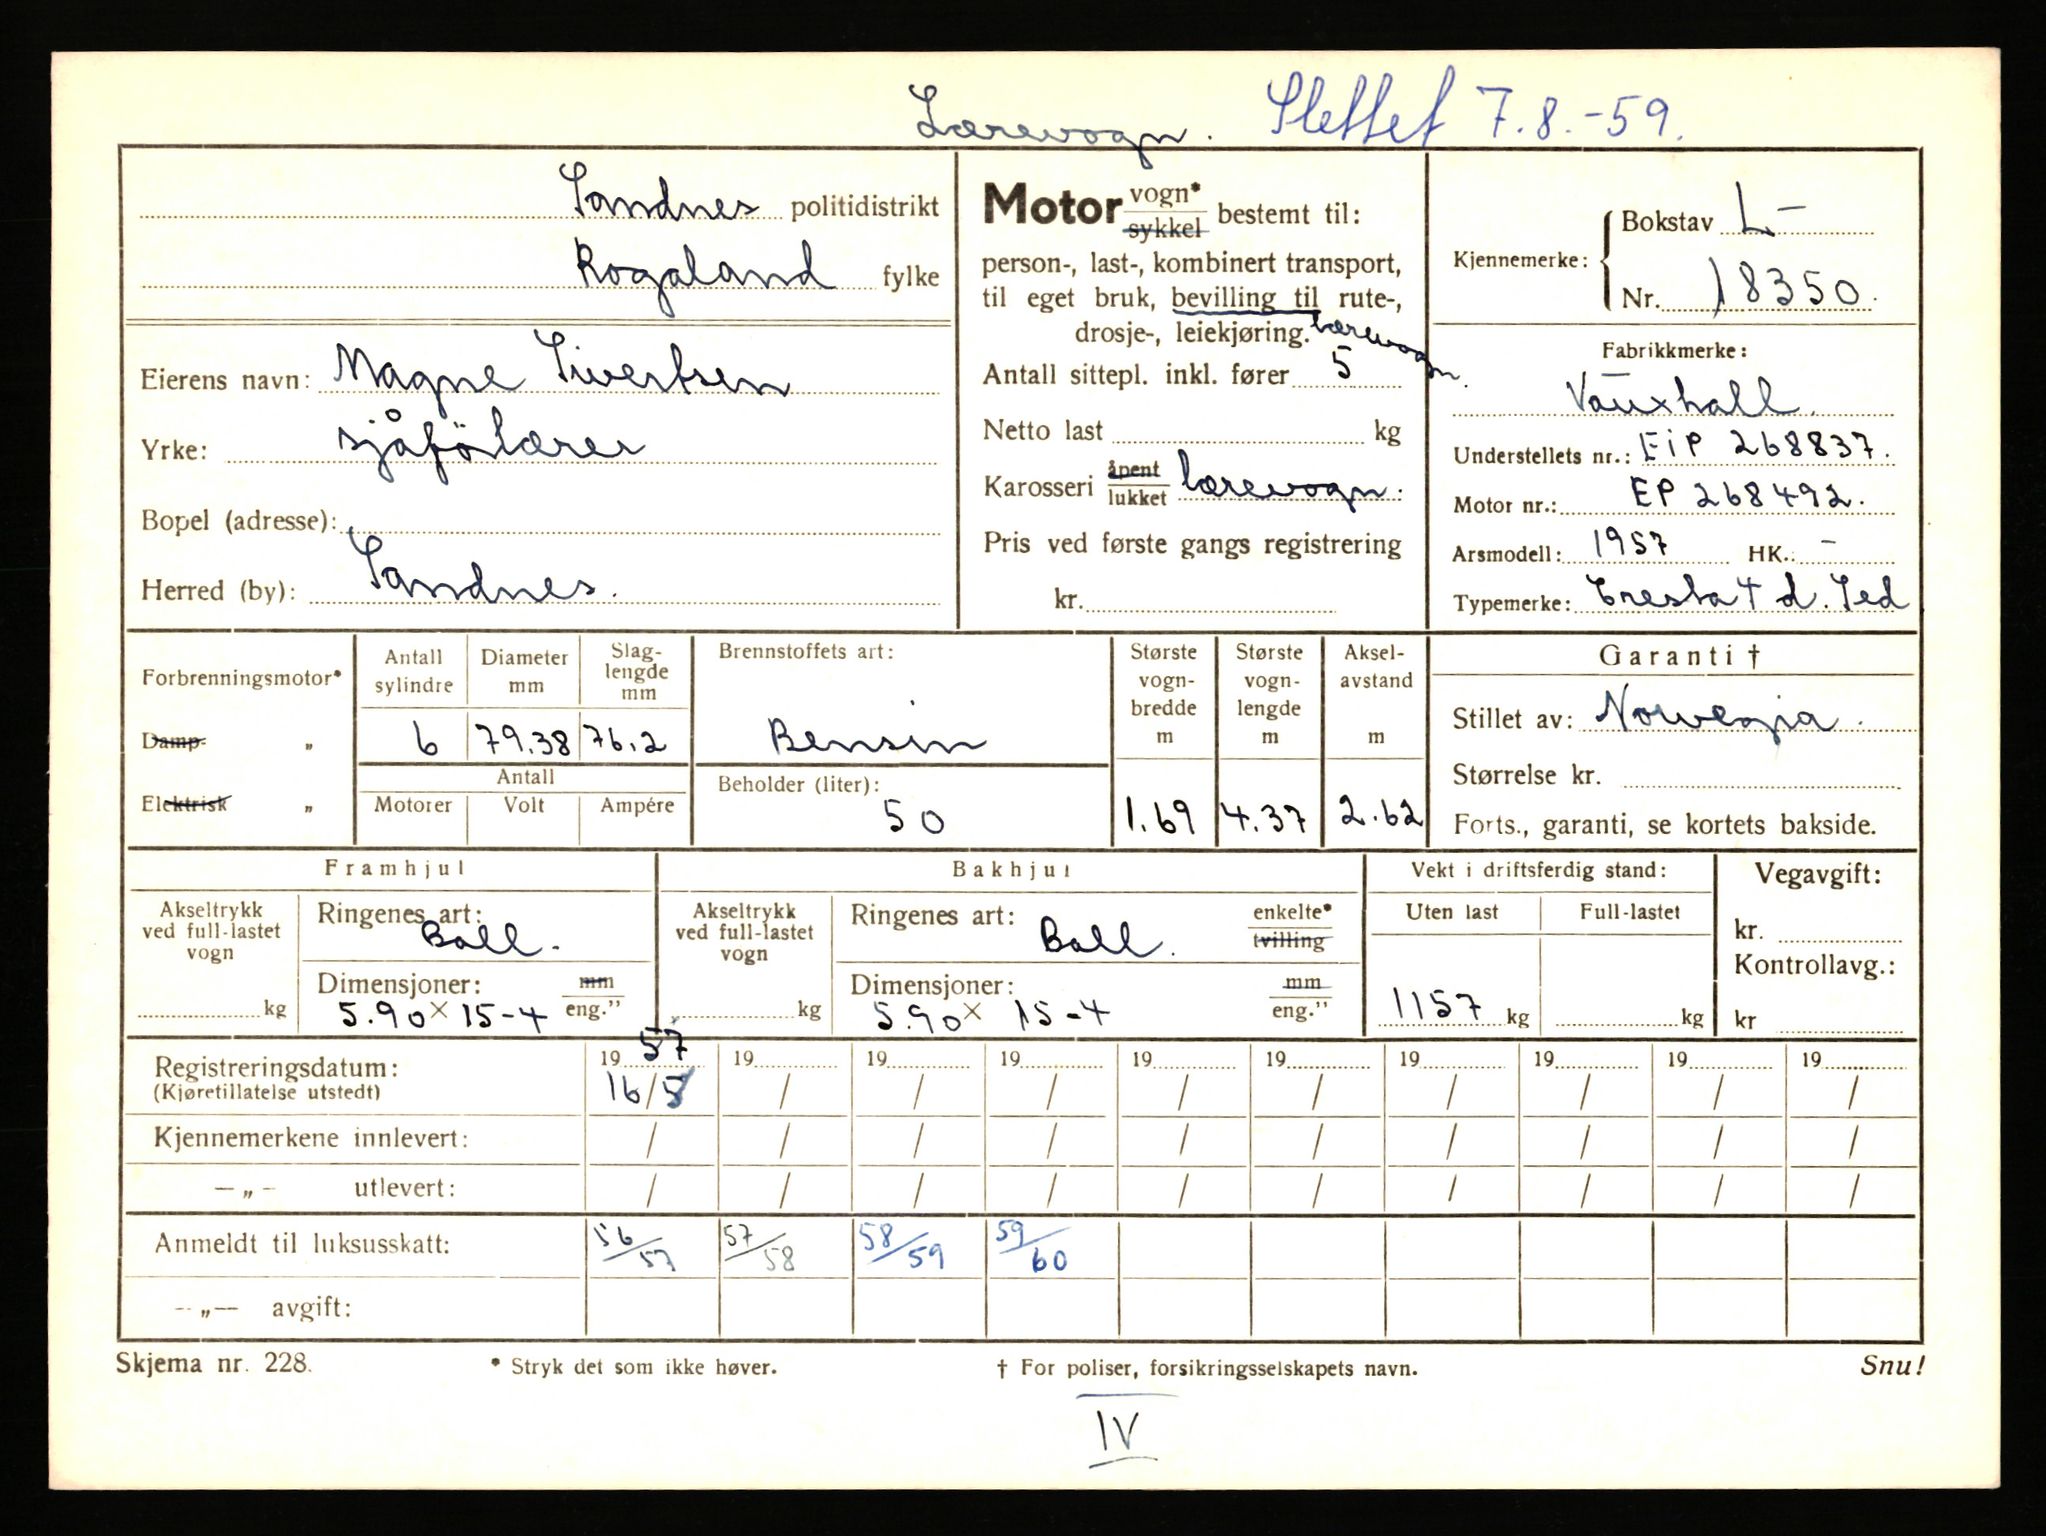 Lærevogn. Slettet 7.8.-59.
Sandnes politidistrikt
Rogaland fylke
Eierens navn: Magne Sivertsen
Yrke: sjåförlærer
Bopel (adresse):
Herred (by): Sandnes.
Motor vogn* sykkel bestemt til:
person-, last-, kombinert transport,
til eget bruk, bevilling til rute-,
drosje-, leiekjøring. lærevogn.
Antall sittepl. inkl. fører 5
Netto last kg
Karosseri åpent lukket lærevogn.
Pris ved første gangs registrering
kr.
Kjennemerke: Bokstav L-
Nr. 18350.
Fabrikkmerke:
Vauxhall.
Understellets nr.: EiP 268837.
Motor nr.: EP 268492.
Arsmodell: 1957 HK.: -
Typemerke: Cresta 4 d. Sed
Forbrenningsmotor*
Damp- „
Elektrisk „
Antall sylindre Diameter mm Slag-lengde mm
6 79.38 76.2
Antall
Motorer Volt Ampére
Brennstoffets art:
Bensin
Beholder (liter):
50
Største vogn-bredde m Største vogn-lengde m Aksel-avstand m
1.69 4.37 2.62
Garanti †
Stillet av: Norwegia.
Størrelse kr.
Forts., garanti, se kortets bakside.
Framhjul
Akseltrykk ved full-lastet vogn
kg
Ringenes art:
Ball.
Dimensjoner: mm
5.90 x 15-4 eng.”
Bakhjul
Akseltrykk ved full-lastet vogn
kg
Ringenes art: enkelte*
Ball. tvilling
Dimensjoner: mm
5.90 x 15-4 eng.”
Vekt i driftsferdig stand:
Uten last Full-lastet
1157 kg kg
Vegavgift:
kr.
Kontrollavg.:
kr
Registreringsdatum: 19 57 19 19 19 19 19 19 19 19 19
(Kjøretillatelse utstedt) 16/5 / / / / / / / / /
Kjennemerkene innlevert: / / / / / / / / / /
—„— utlevert: / / / / / / / / / /
Anmeldt til luksusskatt: 56/57 57/58 58/59 59/60
—„— avgift:
Skjema nr. 228. * Stryk det som ikke høver. † For poliser, forsikringsselskapets navn. Snu!
IV